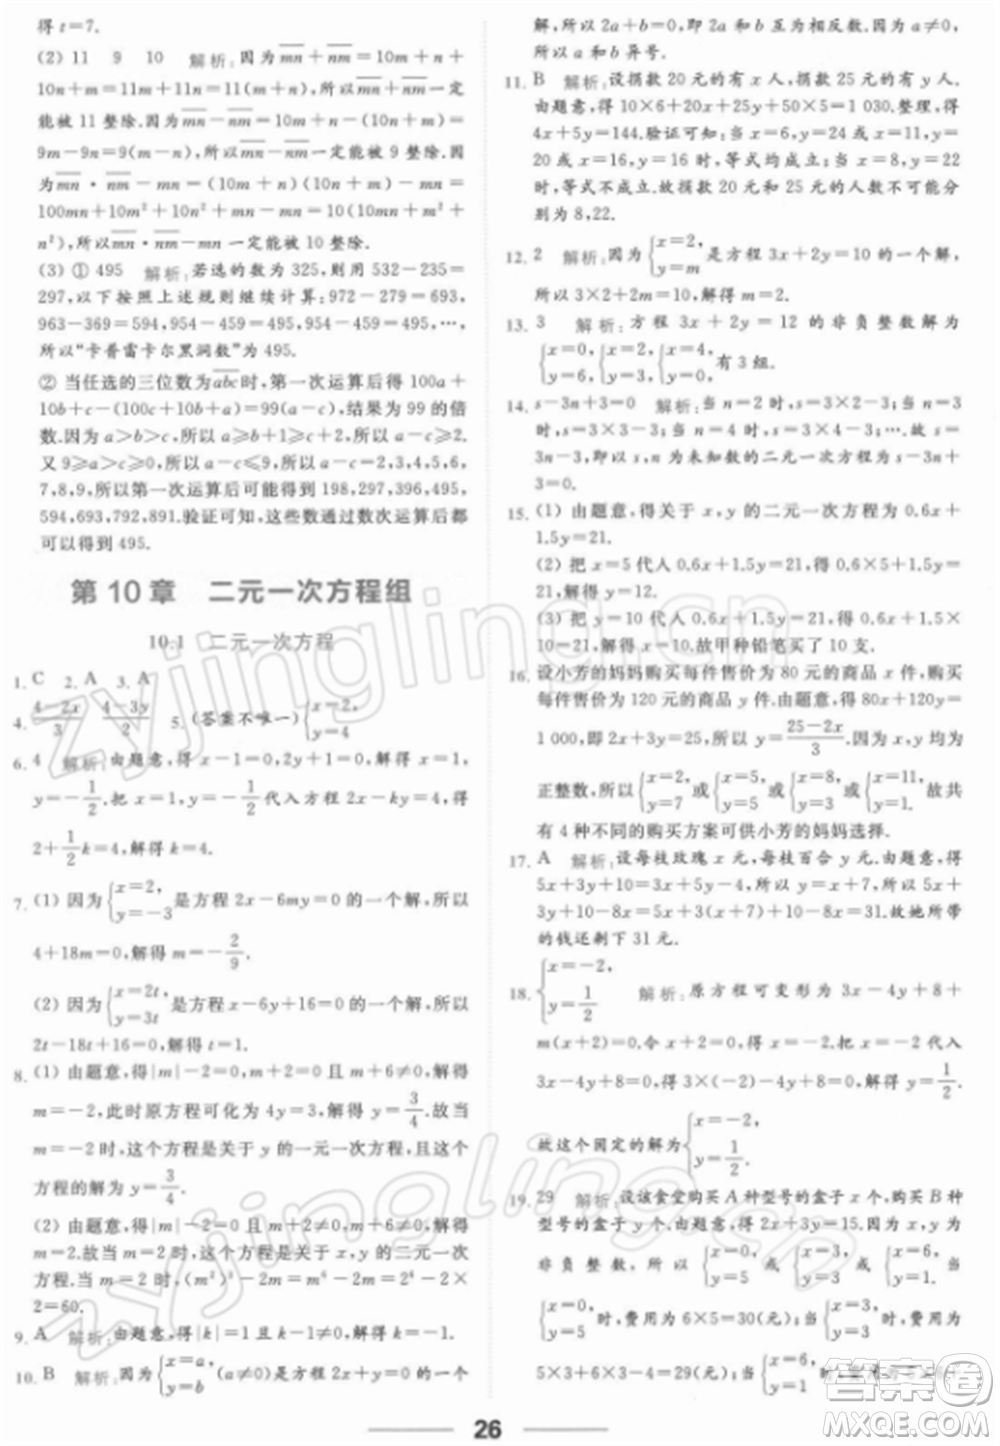 得 t=7.
(2) 11 9 10 解析:因为 mn+nm=10m+n+
10n+m=11m+11n=11(m+n),所以 mn+nm 一定
能被 11 整除.因为 mn-nm=10m+n-(10n+m)=
9m-9n=9(m-n),所以 mn-nm 一定能被 9 整除.
因为 mn·nm-mn=(10m+n)(10n+m)-(10m+n)=
能得到 495.
(3) ① 495 解析:若选的数为 325,则 532-235=
297,以下按照上述规则继续计算:972-279=693,
963-369=594,954-459=495,954-459=495,…,
所以“卡普雷卡尔黑洞数”为 495.
② 当任选的三位数为 abc 时,第一次运算后得 100a+
10b+c-(100c+10b+a)=99(a-c),结果为 99 的倍
数.因为 a>b>c,所以 a≥b+1≥c+2.所以 a-c≥2.
又 9≥a>b>c≥0,所以 a-c≤9.所以 a-c=2,3,4,5,6,
7,8,9,所以第一次运算后可能得到 198,297,396,495,
594,693,792,891.验证可知,这些数通过数次运算后都
可以得到 495.
第 10 章 二元一次方程组
10.1 二元一次方程
1. C 2. A 3. A
4. (4-2x)/3 (4-3y)/2 5. (答案不唯一){x=2, y=4
6. 4 解析:由题意,得 x-1=0,2y+1=0,解得 x=1,
y=-1/2.把 x=1,y=-1/2代入方程 2x-ky=4,得
2+1/2k=4,解得 k=4.
7. (1) 因为{x=2, y=-3 是方程 2x-6my=0 的一个解,所以
4+18m=0,解得 m=-2/9.
(2) 因为{x=2t, y=3t 是方程 x-6y+16=0 的一个解,所以
2t-18t+16=0,解得 t=1.
8. (1) 由题意,得|m|-2=0,且 m-2≠0,解得
m=-2,此时原方程可化为 4y=3,解得 y=3/4.故当
m=-2 时,这个方程是关于 y 的一元一次方程,且这个
方程的解为 y=3/4.
(2) 由题意,得|m|-2=0,且 m-2=0,m+2≠0,解得
方程.当 m=2 时,
2=60.
9. A 解析:由题意,得|k|=1,且 k-1≠0,解得 k=-1.
10. B 解析:因为{x=a, y=b (a≠0)是方程 2x+y=0 的一个
26
解,所以 2a+b=0,即 b=-2a.因为 a≠0,
所以 a 和 b 异号.
11. B 解析:设捐款 20 元的有 x 人,捐款 25 元的有 y 人.
由题意,得 10×6+20x+25y+50×5=1 030.整理,得
4x+5y=144.验证可知:当 x=11,y=20 时,x=6,y=24
或 x=16,y=16 时,等式均成立;当 x=8,y=22
时,等式不成立.故捐款 20 元和 25 元的人数不可能分
别为 8,22.
12. 2 解析:因为{x=2, y=m 是方程 3x+2y=10 的一个解,
所以 3×2+2m=10,解得 m=2.
13. 3 解析:方程 3x+2y=12 的非负整数解为
{x=0, y=6, {x=2, y=3, {x=4, y=0, 有 3 组.
14. s-3n+3=0 解析:当 n=2 时,s=3;当 n=3
时,s=3×3-3=6;当 n=4 时,s=3×4-3=9,故s=
3n-3.所以以 s,n 为未知数的二元一次方程为 s-3n+
3=0.
15. (1) 由题意,得关于 x,y 的二元一次方程为 0.6x+
1.5y=21.
(2) 把 x=5 代入 0.6x+1.5y=21,得 0.6×5+1.5y=21,
解得 y=12.
(3) 把 y=10 代入 0.6x+1.5y=21,得 0.6x+1.5×
10=21,解得 x=10.故甲种铅笔买了 10 支.
16. 设小芳的妈妈购买每件售价为 80 元的商品 x 件,购买
每件售价为 120 元的商品 y 件.由题意,得 80x+120y=
1 000,即 2x+3y=25,所以 y=(25-2x)/3.因为 x,y 均为
正整数,所以{x=2, y=7 或{x=5, y=5 或{x=8, y=3 或{x=11, y=1. 故共
有 4 种不同的购买方案可供小芳的妈妈选择.
17. A 解析:设每枝玫瑰 x 元,每枝百合 y 元.由题意,得
的钱还剩下 31 元.
18. {x=-2, y=1/2 解析:原方程可变形为 3x-4y+8+
m(x+2)=0.由
3×(-2)-4y+8=0,解得 y=1/2.
故这个固定的解为{x=-2, y=1/2.
19. 29 解析:设该食堂购买 A 种型号的盒子 x 个,购买 B 种
型号的盒子 y 个.由题意,得 2x+3y=15.因为 x,y 均为
非负整数,所以{x=0, y=5 或{x=3, y=3 或{x=6, y=1. 当
{x=0, y=5 时,费用为 6×5=30(元);当{x=3, y=3 时,费用为
5×3+6×3-4=29(元);当{x=6, y=1 时,
zyjingling.cn
zyjingling.cn
答案圈
MXQE.COM